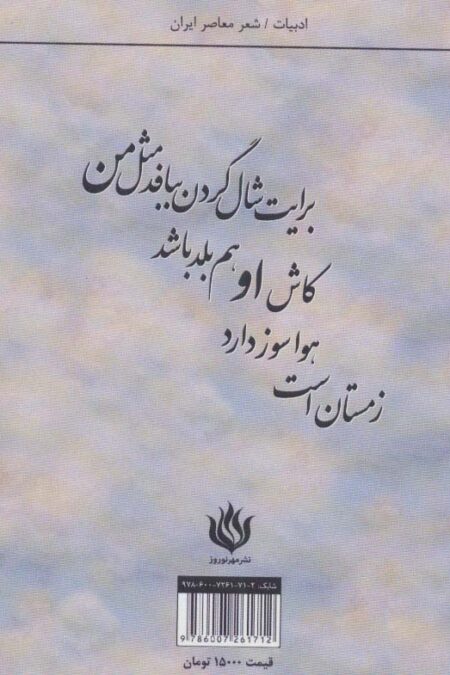 ادبیات / شعر معاصر ایران
برایت شال گردن ببافد مثل من
کاش او هم بلد باشد
هوا سوز دارد
زمستان است
نشر مهر نوروز
شابک: ۲-۷۱-۷۲۶۱-۶۰۰-۹۷۸
9 786007 261712
قیمت ۱۵۰۰۰ تومان